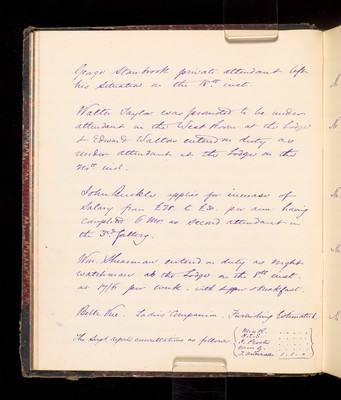 George Stanbrook private attendant left
his situation on the 18th inst.
Walter Taylor was promoted to be under
attendant in the West Room at the Lodge
& Edward Walton entered on duty as
under attendant at the Lodges on the
inst.
John Buckle applies for increase of
Salary from £28 to £30 per ann having
completed 6 Mos. as second attendant in
the 3rd Gallery.
Wm Shearman entered on duty as night
watchman at the Lodge on the 1st inst.
at 17/6 per week. with supper & breakfast.
Belle Vue. Ladies' Companion. Furnishing Estimates
The Supt reports consultations as follows